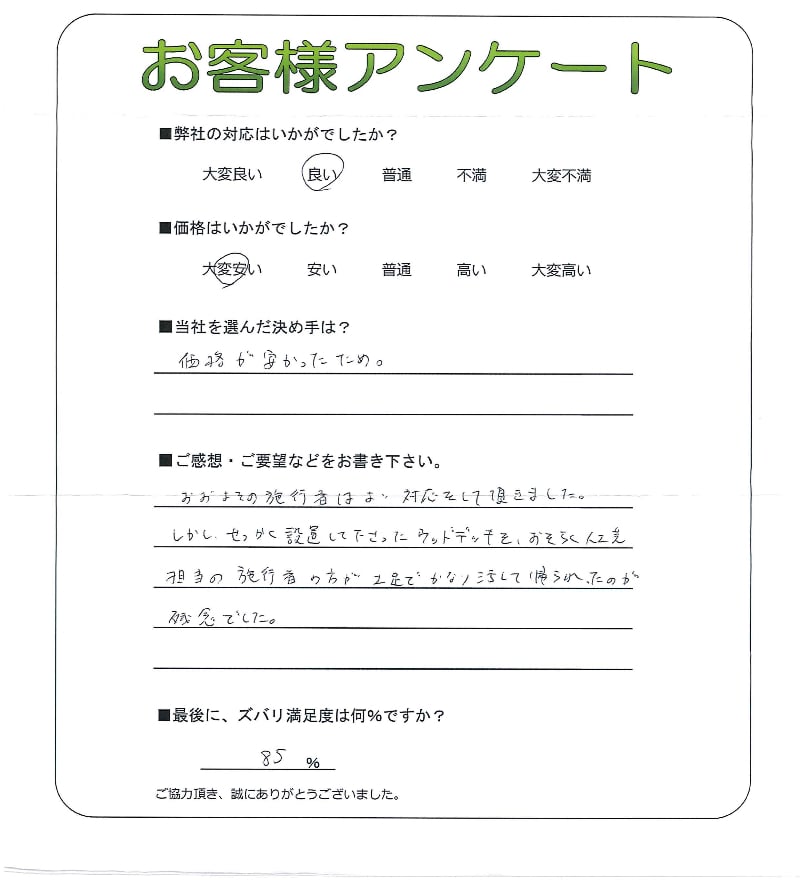 お客様アンケート
■弊社の対応はいかがでしたか？
大変良い 良い 普通 不満 大変不満
■価格はいかがでしたか？
大変安い 安い 普通 高い 大変高い
■当社を選んだ決め手は？
価格が安かったため。
■ご感想・ご要望などをお書き下さい。
おおよその施行者はよい対応をして頂きました。
しかし、せっかく設置して下さったウッドデッキを、おそらく人工芝
担当の施行者の方が土足でかなり汚して帰られたのが
残念でした。
■最後に、ズバリ満足度は何%ですか？
85 %
ご協力頂き、誠にありがとうございました。